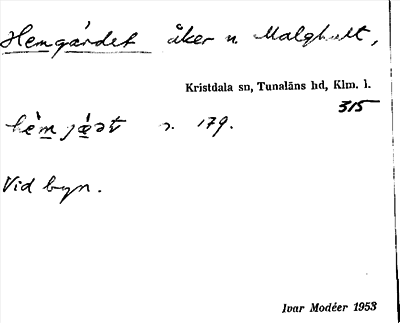 Hemgärdet åker n. Malghult,
Kristdala sn, Tunaläns hd, Klm. l.
315
s. 179.
Vid byn.
Ivar Modéer 1953